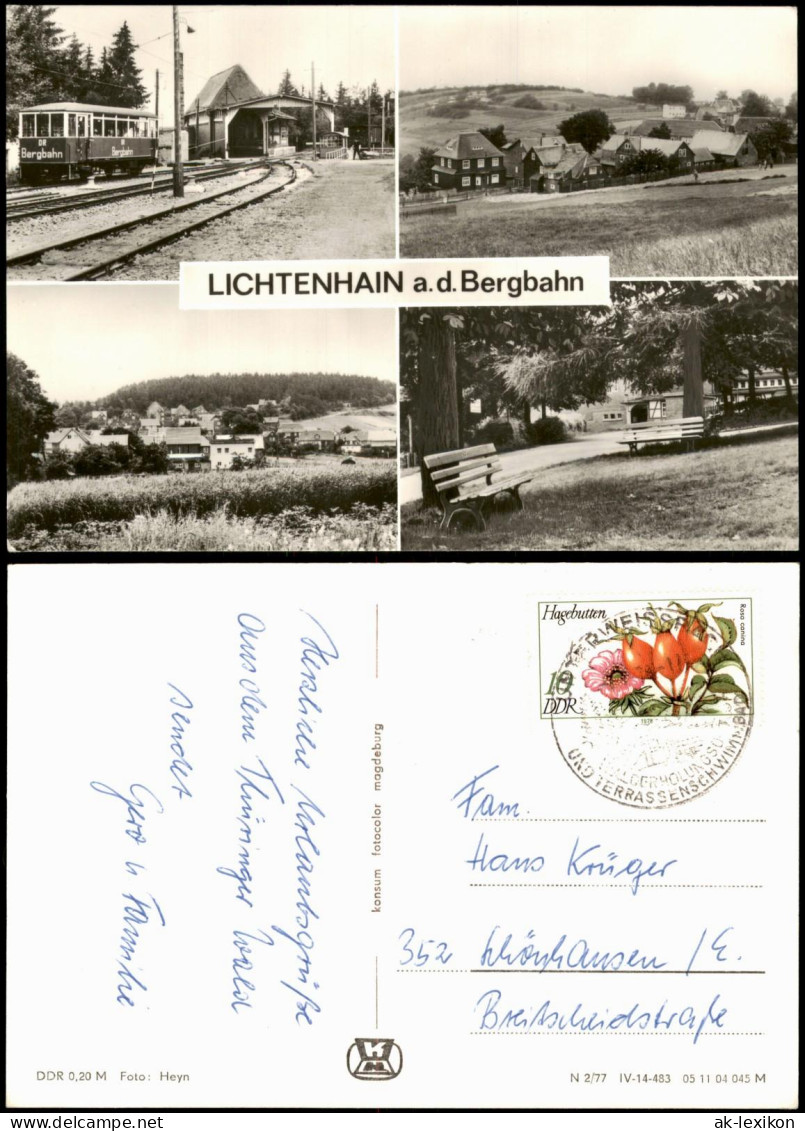 DR
Bergbahn
Bergbahn
LICHTENHAIN a.d.Bergbahn
Herzliche Urlaubsgrüße
aus dem Thüringer Wald
sendet
Gerd u Familie
konsum fotocolor magdeburg
Hagebutten
Rosa canina
10
DDR
UND TERRASSENSCHWIMMBAD
Fam.
Hans Krüger
352 Schönhausen/E.
Breitscheidstraße
DDR 0,20 M Foto: Heyn
N 2/77 IV-14-483 05 11 04 045 M
ak-ansichtskarten.de